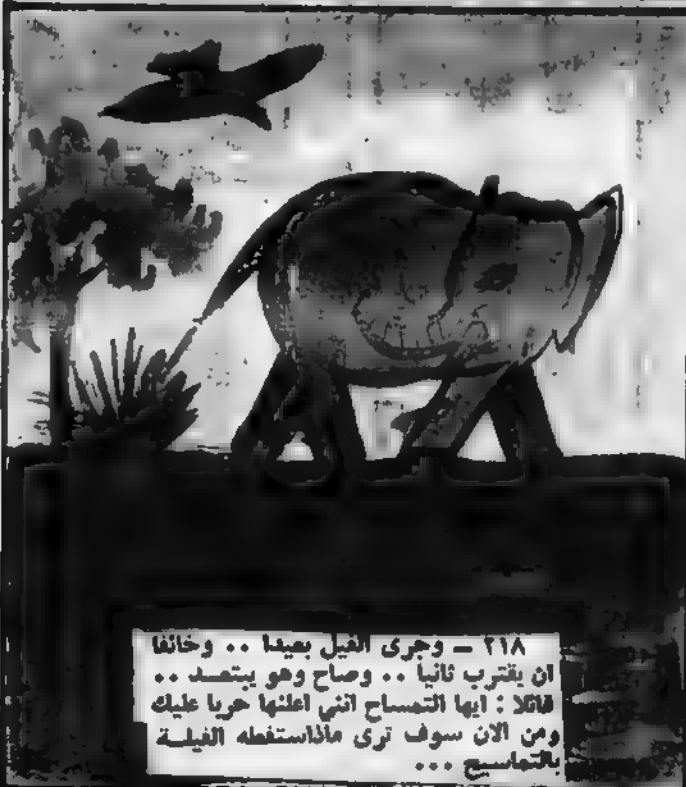 ٢١٨ – وجرى الفيل بعيدا .. وخائفا
ان يقترب ثانيا .. وصاح وهو يبتعد ..
قائلا : ايها التمساح انني اعلنها حربا عليك
ومن الان سوف ترى ماذاستفعله الفيلة
بالتماسيح ...